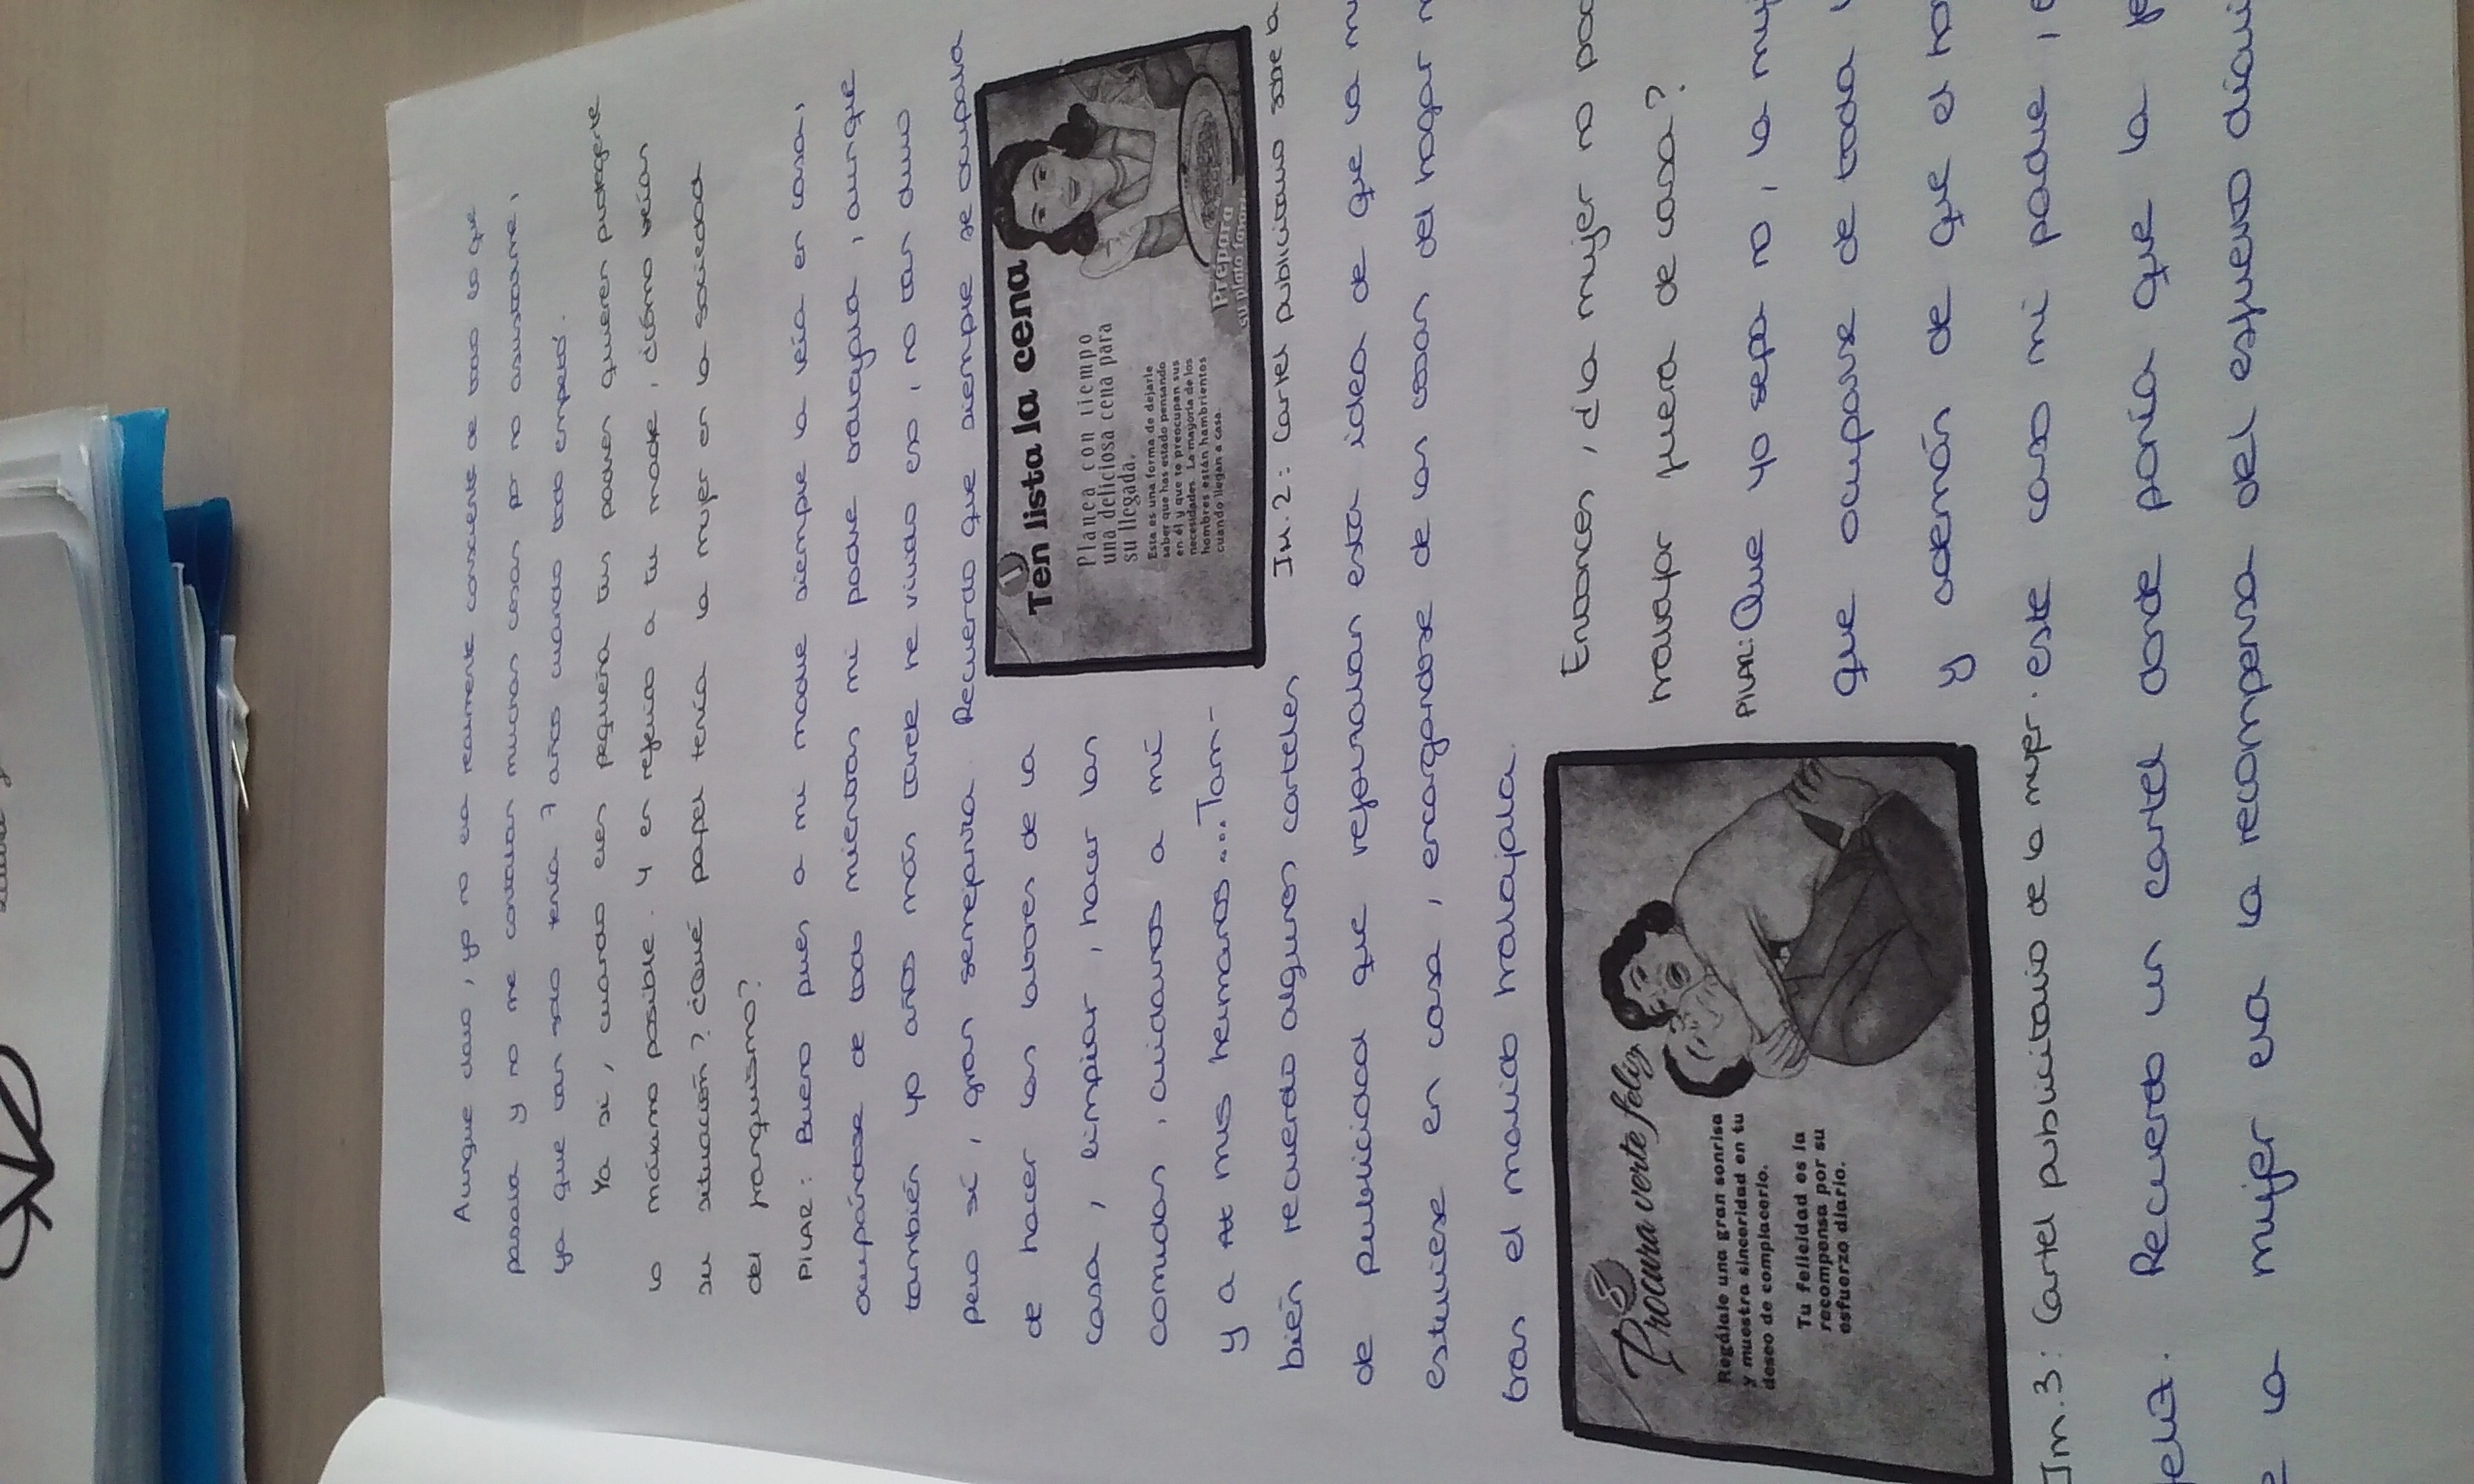 Aunque claro, yo no era realmente consciente de todo lo que
pasaba y no me contaban muchas cosas por no asustarme,
ya que tan solo tenía 7 años cuando todo empezó.
Ya sí, cuando eres pequeña tus padres quieren protegerte
lo máximo posible. Y en referido a tu madre, ¿cómo veías
su situación? ¿Qué papel tenía la mujer en la sociedad
del franquismo?
PILAR: Bueno pues a mi madre siempre la veía en casa,
ocupándose de todo mientras mi padre trabajaba, aunque
también yo años más tarde he vivido eso, no tan duro
pero sí, gran semejanza. Recuerdo que siempre se ocupaba
de hacer las labores de la
casa, limpiar, hacer las
comidas, cuidarnos a mí
y a mis hermanos...Tam-
bién recuerdo algunos carteles
1
Ten lista la cena
Planea con tiempo
una deliciosa cena para
su llegada.
Esta es una forma de dejarle
saber que has estado pensando
en él y que te preocupan sus
necesidades. La mayoría de los
hombres están hambrientos
cuando llegan a casa.
Prepara
su plato
Im.2: Cartel publicitario sobre
de publicidad que reforzaban esta idea de que la
estuviese en casa, encargandose de las cosas del hogar
tras el marido trabajaba.
3
Procura verte feliz
Regálale una gran sonrisa
y muestra sinceridad en tu
deseo de complacerlo.
Tu felicidad es la
recompensa por su
esfuerzo diario.
Im.3: Cartel publicitario de la mujer.
Entonces, ¿la mujer no
trabajar fuera de casa?
PILAR: Que yo sepa no, la
que ocuparse de toda
y además de que el
este caso mi padre,
Recuerdo un cartel donde ponía que la
la mujer era la recompensa del esfuerzo